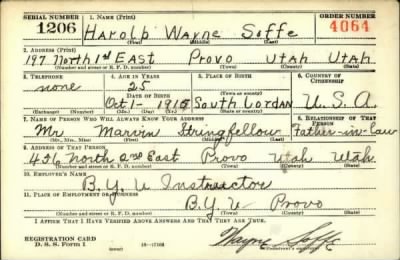 SERIAL NUMBER 1. NAME (Print) ORDER NUMBER
1206 Harold Wayne Soffe 4064
(First) (Middle) (Last)
2. ADDRESS (Print)
197 North 1st East Provo Utah Utah
(Number and street or R. F. D. number) (Town) (County) (State)
3. TELEPHONE 4. AGE IN YEARS 5. PLACE OF BIRTH 6. COUNTRY OF CITIZENSHIP
none 25
DATE OF BIRTH
Oct 1- 1915 South Jordan U.S.A.
(Exchange) (Number) (Mo.) (Day) (Yr.) (Town or county) (State or country)
7. NAME OF PERSON WHO WILL ALWAYS KNOW YOUR ADDRESS 8. RELATIONSHIP OF THAT PERSON
Mr Marvin Stringfellow Father-in-law
(Mr., Mrs., Miss) (First) (Middle) (Last)
9. ADDRESS OF THAT PERSON
426 North 2nd East Provo Utah Utah.
(Number and street or R. F. D. number) (Town) (County) (State)
10. EMPLOYER'S NAME
B.Y.U Instructor
11. PLACE OF EMPLOYMENT OR BUSINESS
B.Y.U Provo
(Number and street or R. F. D. number) (Town) (County) (State)
I AFFIRM THAT I HAVE VERIFIED ABOVE ANSWERS AND THAT THEY ARE TRUE.
REGISTRATION CARD
D. S. S. Form 1 Wayne Soffe
(Registrant's signature)